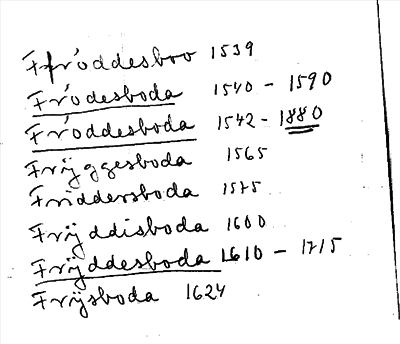 Ffröddesboo 1539
Frödesboda 1540 - 1590
Fröddesboda 1542 - 1880
Frÿggesboda 1565
Friddersboda 1575
Frÿddisboda 1600
Frÿddesboda 1610 - 1715
Frÿsboda 1624